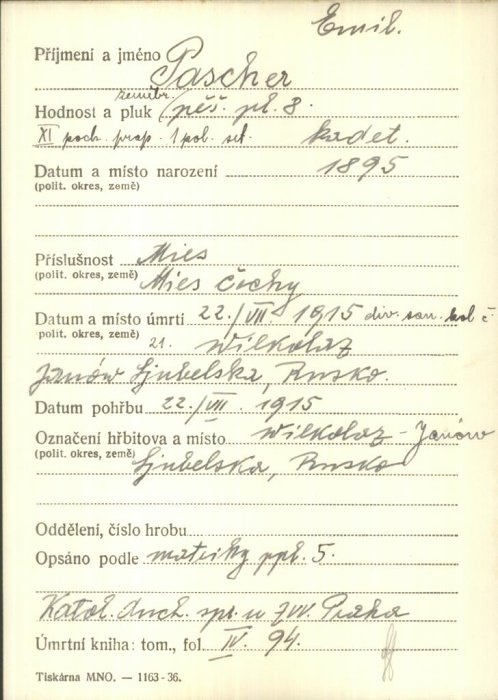 Emil.
Příjmení a jméno Pascher
zeměbr.
Hodnost a pluk pěš. pl. 8.
XI poch. prap. 1 pol. set. kadet.
Datum a místo narození 1895
(polit. okres, země)
Příslušnost Mies
(polit. okres, země) Mies Čechy
Datum a místo úmrtí 22./VII 1915 div. san. kol. č.
(polit. okres, země) 21. Wilkolaz
Janów Ljubelska, Rusko.
Datum pohřbu 22./VII. 1915
Označení hřbitova a místo Wilkolaz - Janów
(polit. okres, země) Ljubelska, Rusko
Oddělení, číslo hrobu
Opsáno podle matriky ppl. 5.
Katol. duch. spr. u ZVV. Praha
Úmrtní kniha: tom., fol. IV. 94.
Tiskárna MNO. — 1163-36.